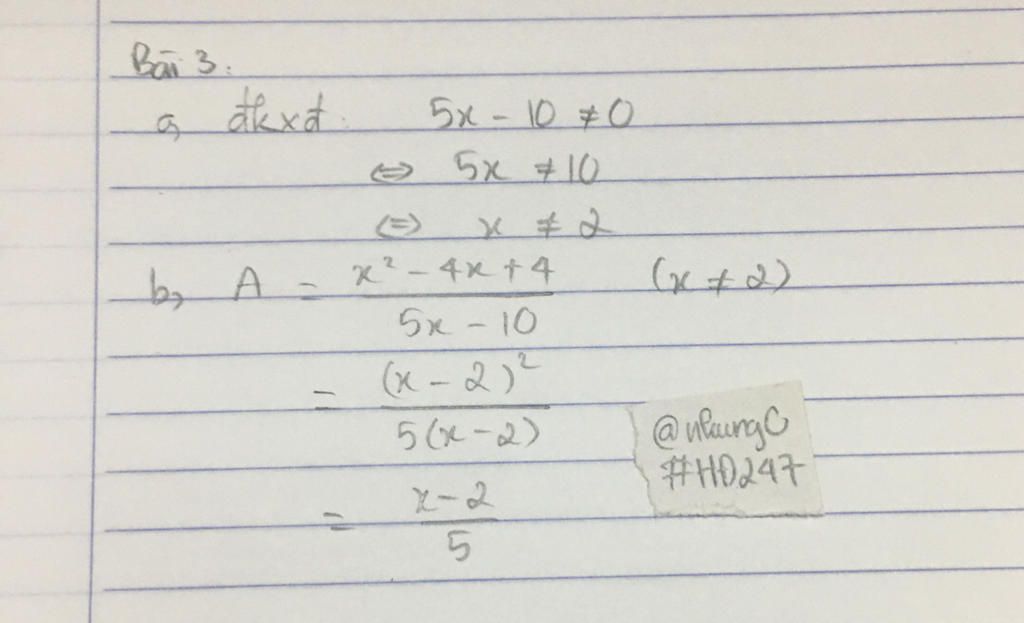 Bài 3:
a, đkxđ: 5x - 10 ≠ 0
⇔ 5x ≠ 10
⇔ x ≠ 2
b, A = (x² - 4x + 4)/(5x - 10) (x ≠ 2)
= (x - 2)²/5(x - 2)
= (x - 2)/5
@nhungC
#HĐ247